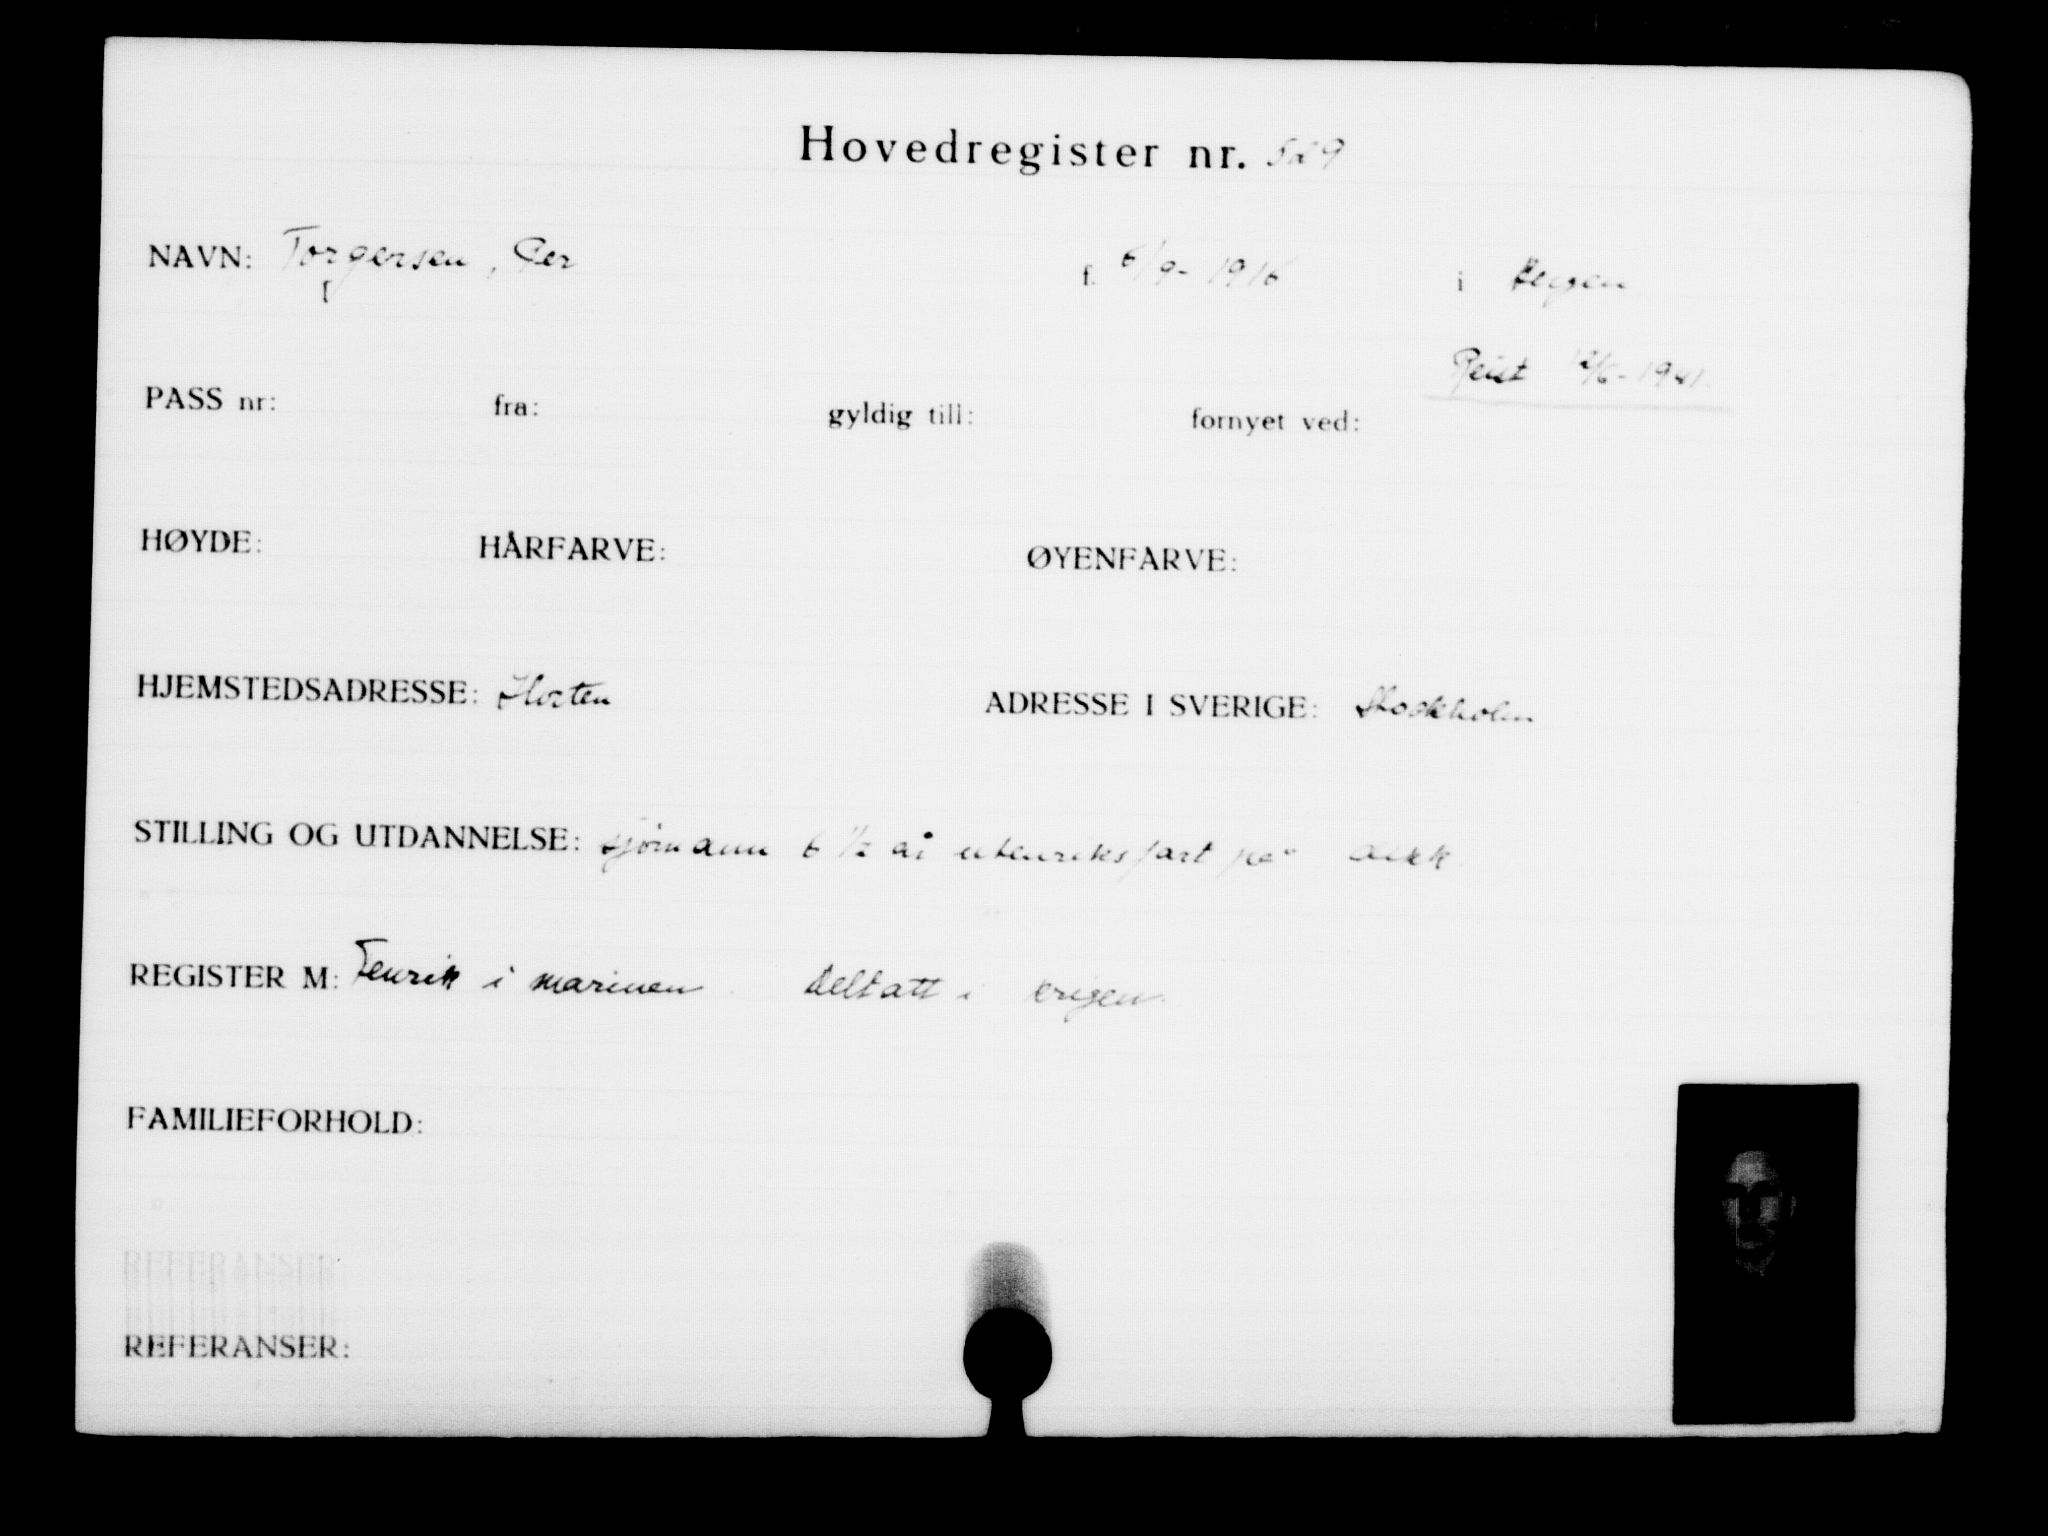 Hovedregister nr. 529
NAVN: Torgersen, Per f. 6/9-1916 i Bergen
Reist 12/6-1941.
PASS nr: fra: gyldig till: fornyet ved:
HØYDE: HÅRFARVE: ØYENFARVE:
HJEMSTEDSADRESSE: Horten ADRESSE I SVERIGE: Stockholm
STILLING OG UTDANNELSE: sjømann 6 1/2 år utenriksfart på dekk
REGISTER M: Fenrik i marinen. Deltatt i krigen.
FAMILIEFORHOLD:
REFERANSER: